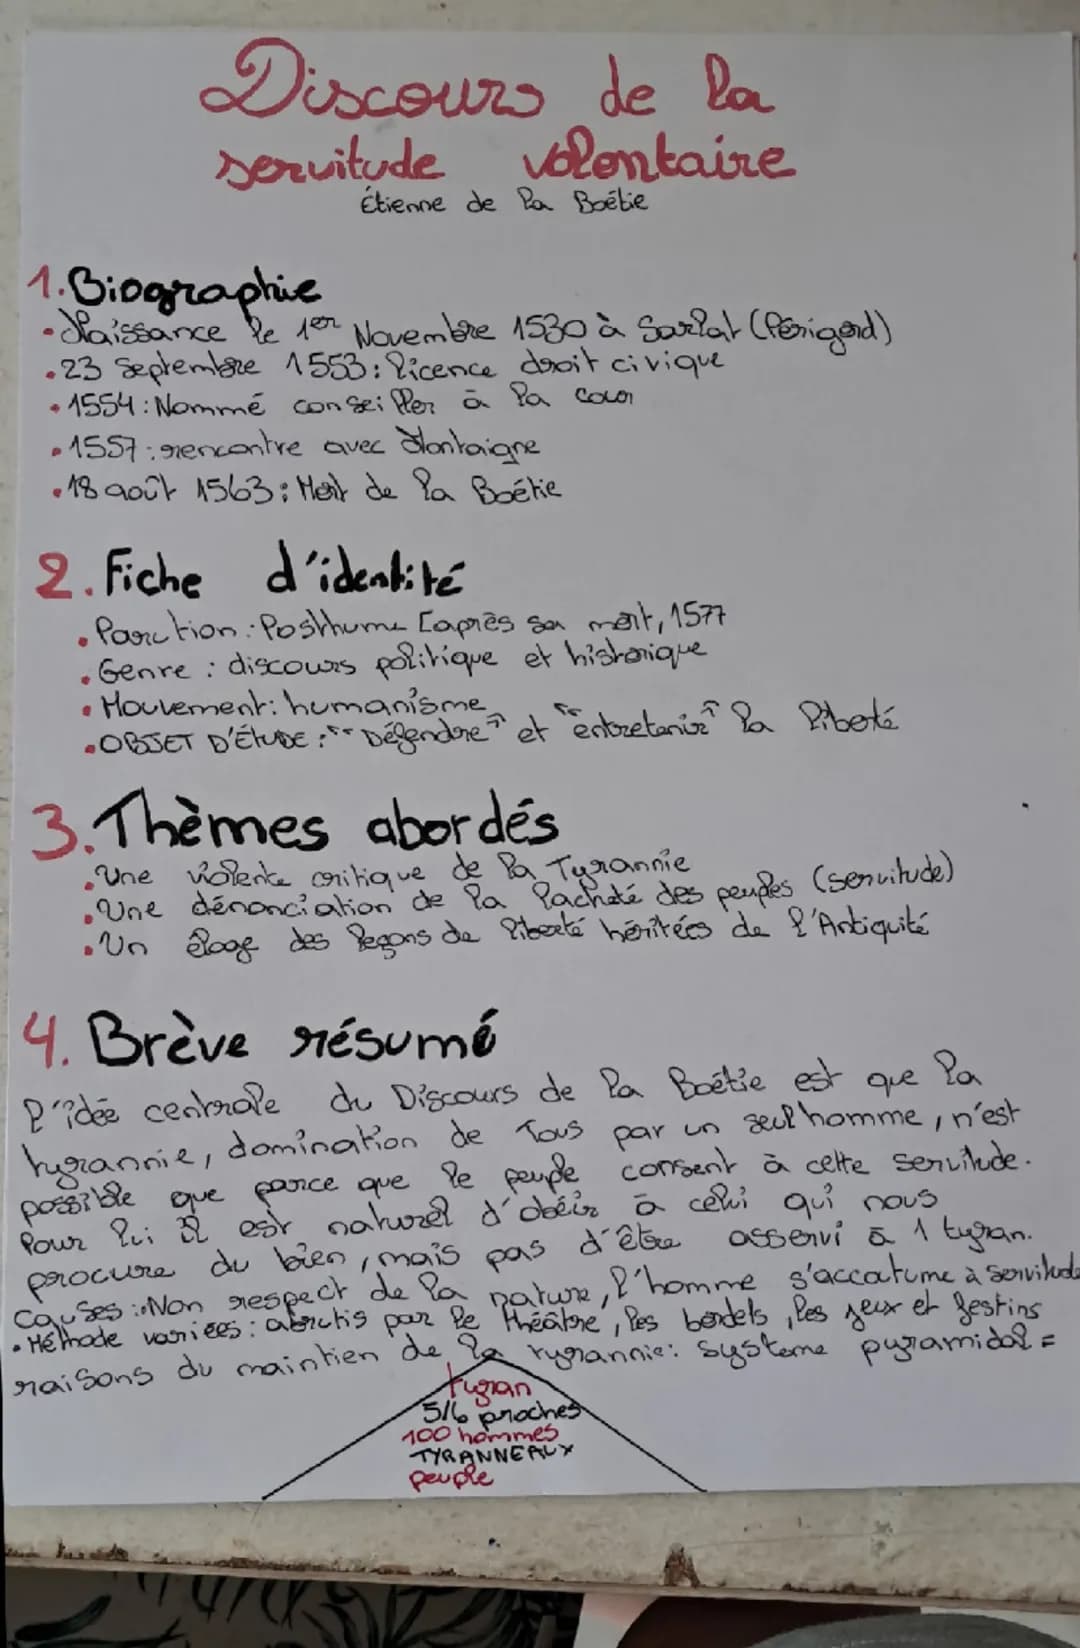 Discours de la
servitude volontaire
Étienne de la Boétie
1. Biographie
• Naissance le 1er Novembre 1530 à Sarlat (Périgord)
• 23 Septembre 1553 : licence droit civique
• 1554 : Nommé conseiller à la cour
• 1557 : rencontre avec Montaigne
• 18 août 1563 : Mort de la Boétie
2. Fiche d'identité
• Parution : Posthume [après sa mort, 1577
• Genre : discours politique et historique
• Mouvement : humanisme
• OBJET D'ÉTUDE : "Défendre" et "entretenir" la liberté
3. Thèmes abordés
• Une violente critique de la Tyrannie
• Une dénonciation de la lacheté des peuples (servitude)
• Un éloge des leçons de liberté héritées de l'Antiquité
4. Brève résumé
l'idée centrale du Discours de la Boétie est que la
tyrannie, domination de Tous par un seul homme, n'est
possible que parce que le peuple consent à cette servitude.
Pour lui il est naturel d'obéir à celui qui nous
procure du bien, mais pas d'être asservi à 1 tyran.
Causes : Non respect de la nature, l'homme s'accoutume à servitude
• Méthode variées : abrutis par le théâtre, les bordels, les jeux et festins
raisons du maintien de la tyrannie : système pyramidal =
tyran
5/6 proches
100 hommes
TYRANNEAUX
peuple